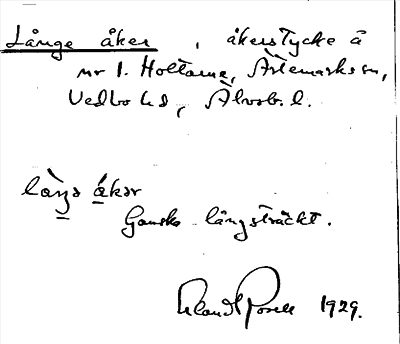 Långe åker, åkerstycke å
nr 1. Holtarna, Ärtemarks sn,
Vedbo hd, Älvsb. l.
långə åkər
Ganska långsträckt.
Erland Rosell 1929.